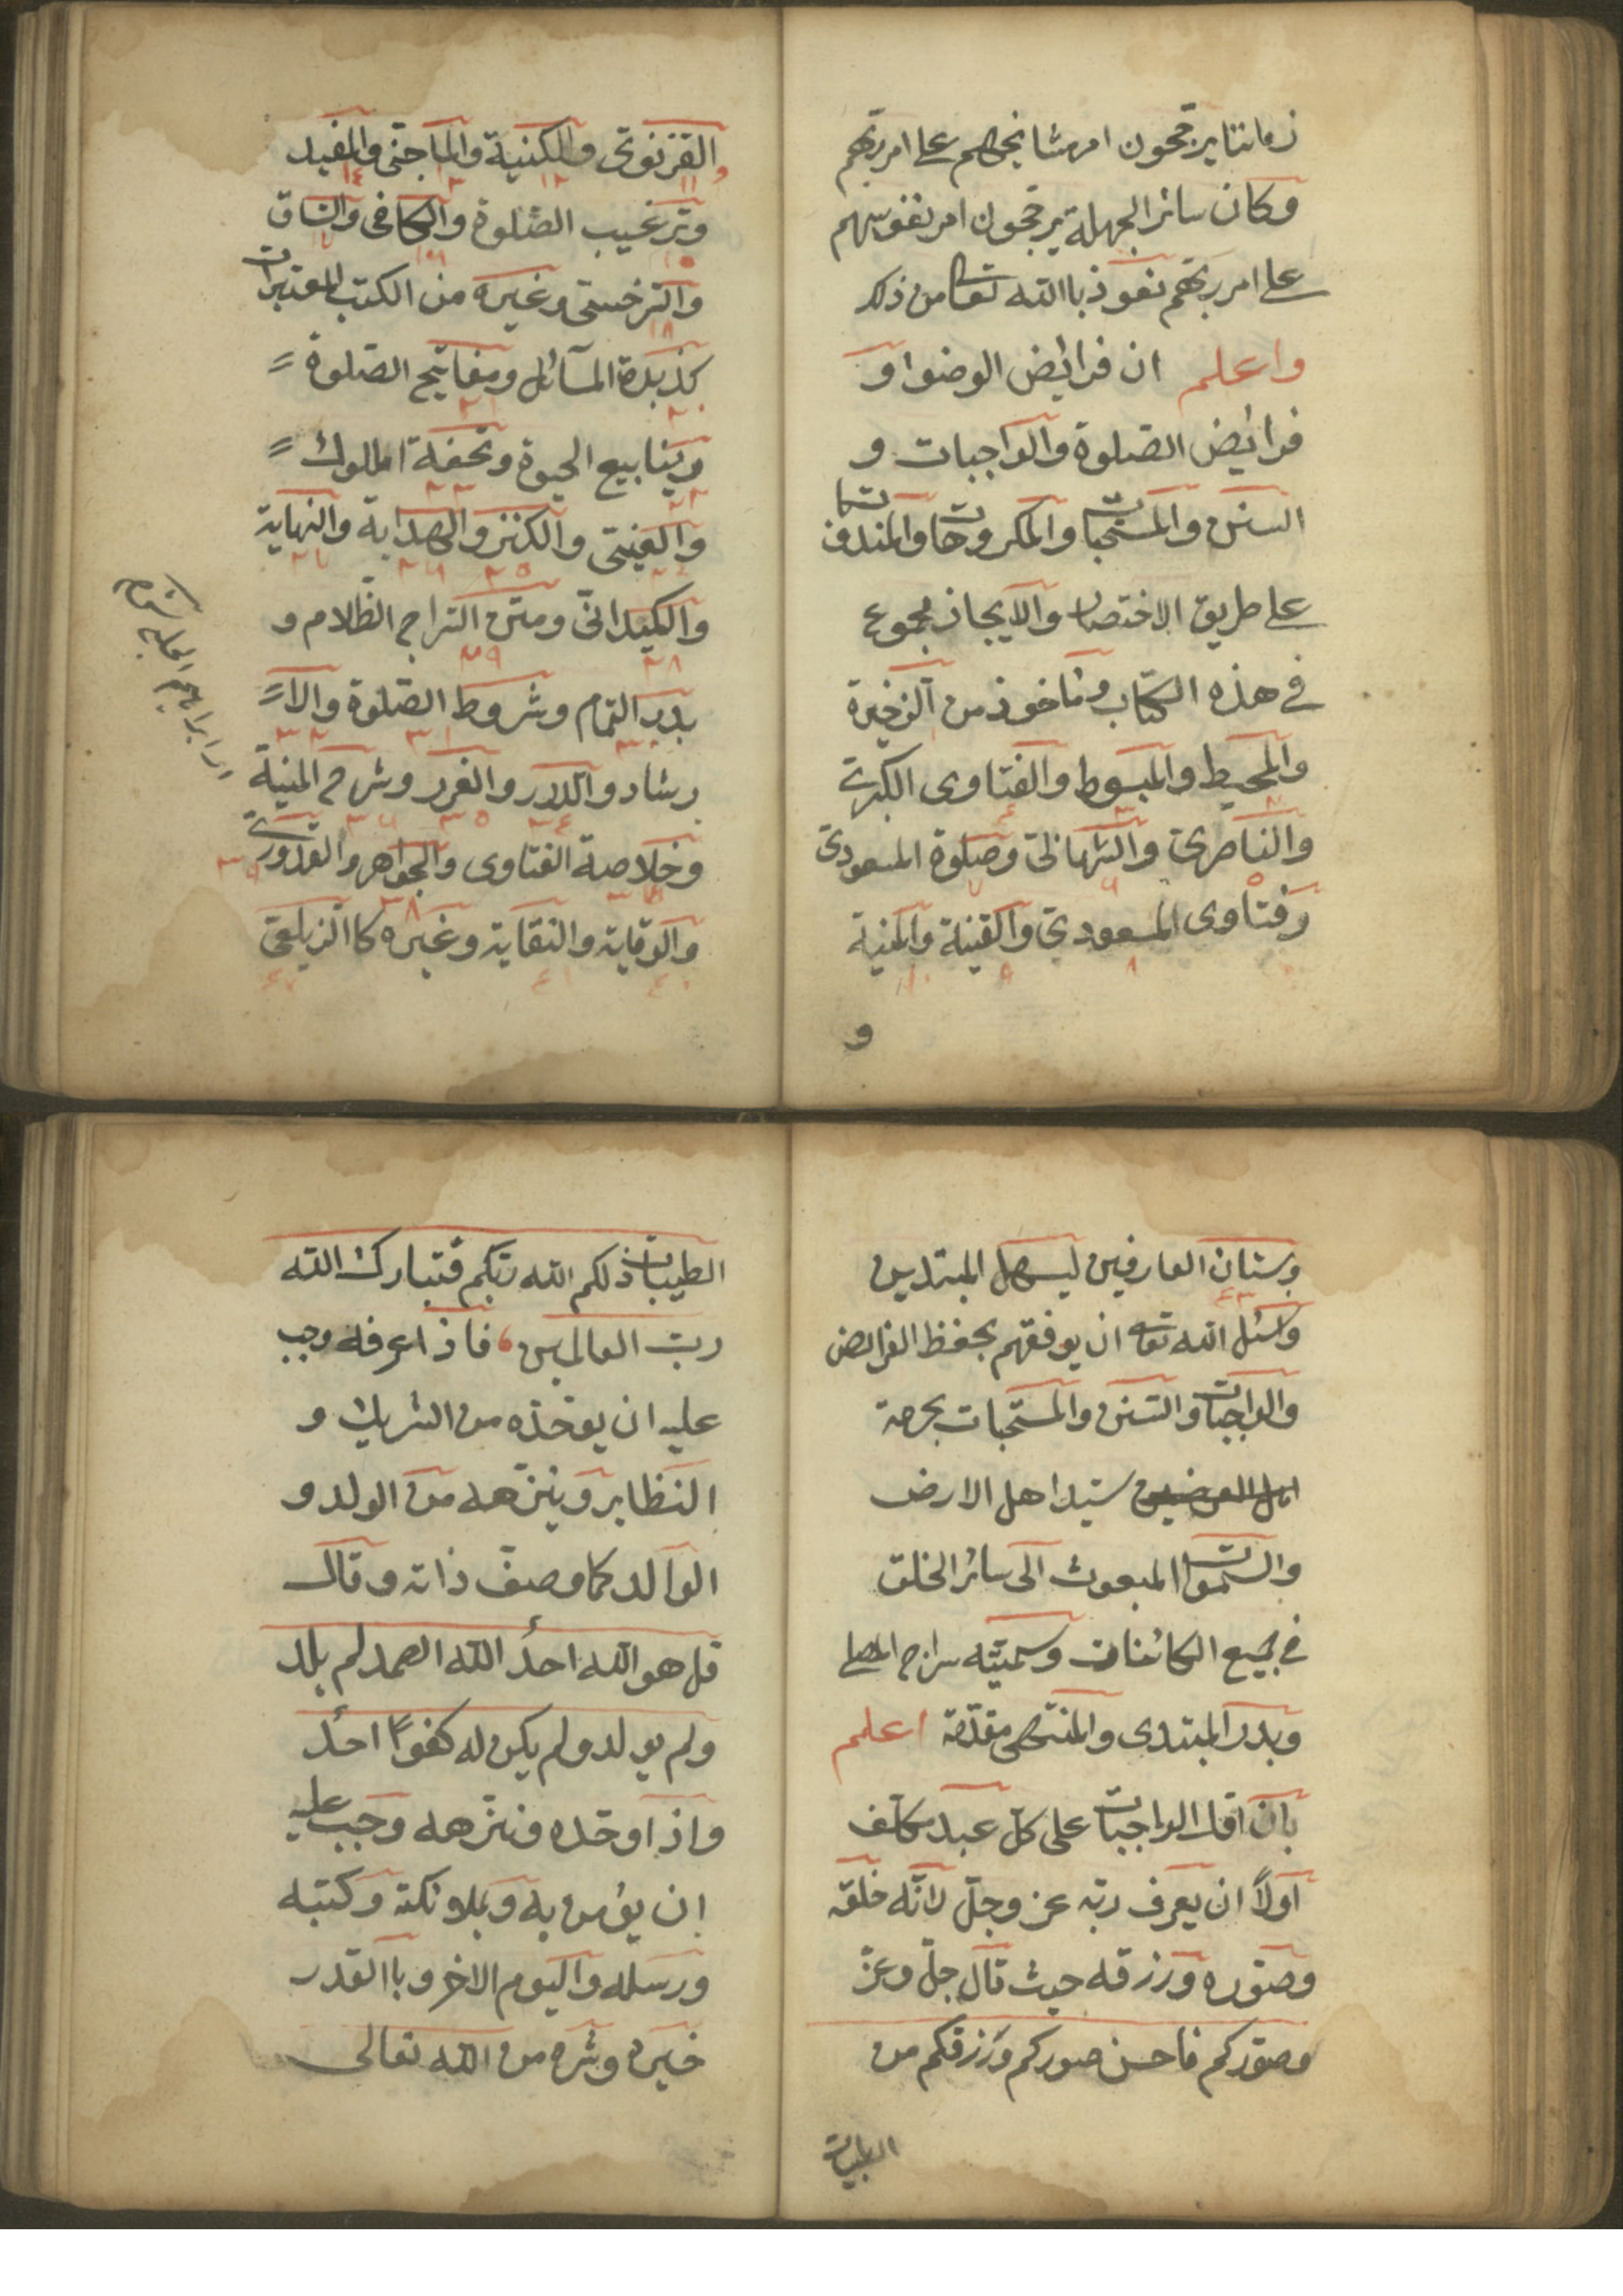 زماننا يرجحون امر مشايخهم على امر ربهم
وكان سائر الجهلة يرجحون امر نفوسهم
على امر ربهم نعوذ باالله تعا من ذلك
واعلم ان فرايض الوضوا و
فرايض الصلوة والواجبات و
السنن والمستحبات والمكروهات والمندفات
على طريق الاختصار والايجاز مجموع
في هذه الكتاب ومأخوذ من الذخيرة
والمحيط والمبسوط والفتاوى الكبرى
والناصرى والبرهانى وصلوة المسعودى
وفتاوى المسعودى والقنية والمنية
و
القزنوى والكنية والماجنى والمفيد
وترغيب الصلوة والكافى والشاق
والترخستى وغيره من الكتب المعتبرات
كذبدة المسائل ومفاتيح الصلوة
وينابيع الحيوة وتحفة الملوك
والعينى والكنز والهداية والنهاية
والكيدانى ومتن السراج الظلام و
بدر التمام وشروط الصلوة والا
رشاد والدرر والغرر وشرح المنية
وخلاصة الفتاوى والجواهر والقدورى
والوقاية والنقاية وغيره كا الزيلعى
وبستان العارفين ليسهل المبتدين
واسئل الله تعا ان يوفقهم بحفظ الفرايض
والواجبات والسنن والمستحبات بحرمة
سيد اهل الارض
والسموات المبعوث الى سائر الخلق
في جميع الكائنات وسميته سراج المصلى
وبدر المبتدى والمنتهى مقدمة اعلم
بان اول الواجبات على كل عبد مكلف
اولاً ان يعرف ربه عز وجل لانه خلقه
وصوره ورزقه حيث قال جل وعز
وصوركم فاحسن صوركم ورزقكم من
الطيبات
الطيبات ذلكم الله ربكم فتبارك الله
رب العالمين فاذا عرفه وجب
عليه ان يوحده من الشريك و
النظاير وينزهه من الولد و
الوالد كما وصف ذاته وقال
قل هو الله احد الله الصمد لم يلد
ولم يولد ولم يكن له كفوًا احد
واذا وحده ونزهه وجب عليه
ان يؤمن به وبملائكته وكتبه
ورسله واليوم الاخر وباالقدر
خيره وشره من الله تعالى